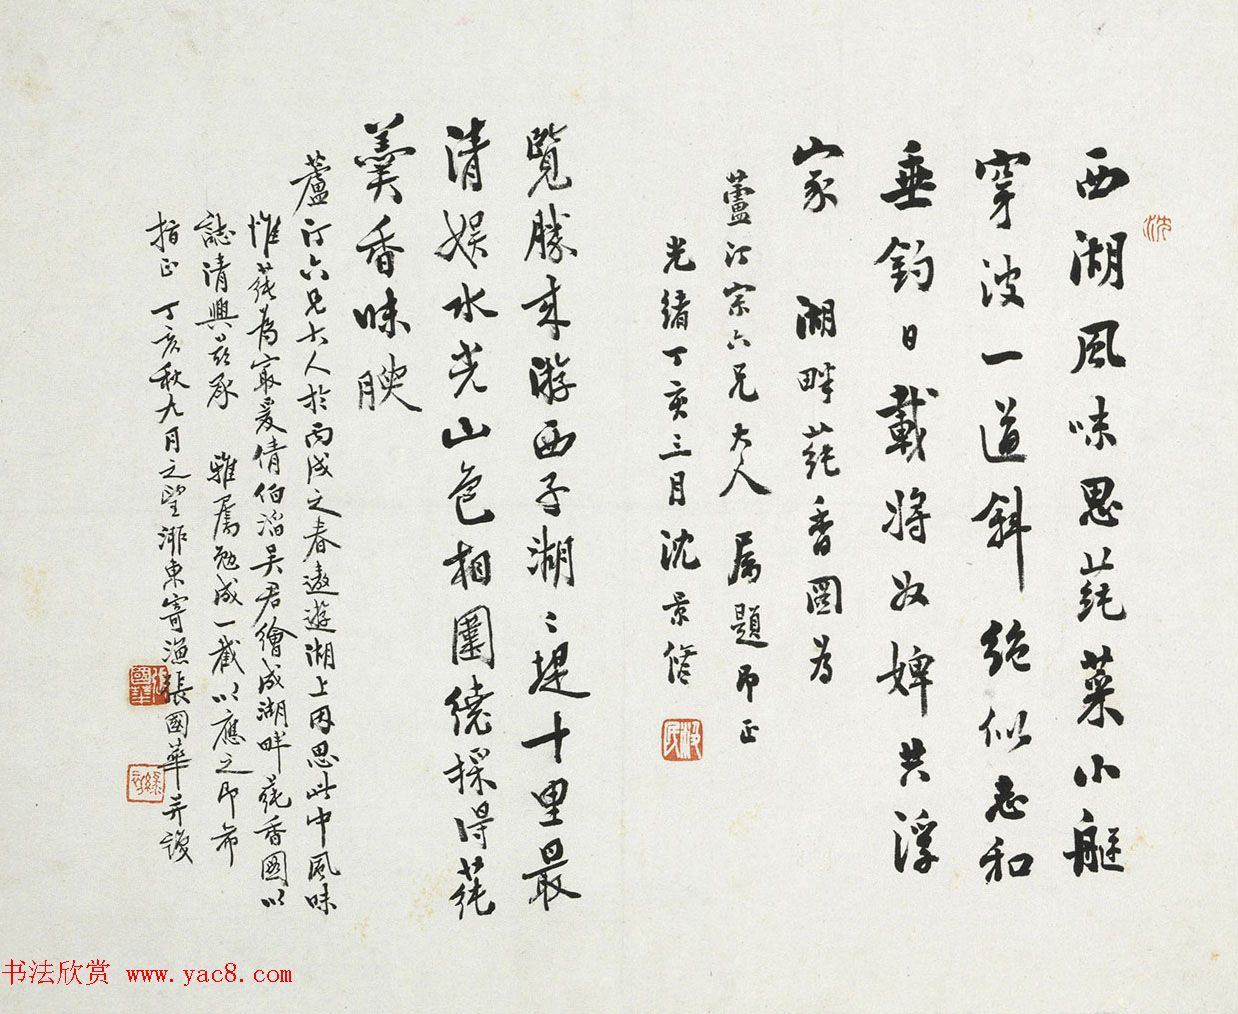 西湖風味思蒓菜小艇
穿波一道斜絶似志和
垂釣日載將奴婢共浮
家 湖畔蒓香圖為
蘆汀宗六兄大人 屬題即正
光緒丁亥三月沈景修
覽勝來游西子湖湖堤十里最
清娱水光山色相圍繞採得蒓
羹香味腴
蘆汀六兄大人於丙戌之春遨遊湖上因思此中風味
惟蒓為最爰倩伯滔吴君繪成湖畔蒓香圖以
誌清興茲承 雅屬勉成一截以應之即希
指正 丁亥秋九月之望 東寄漁張國華并識
沈
國華
书法欣赏 www.yac8.com